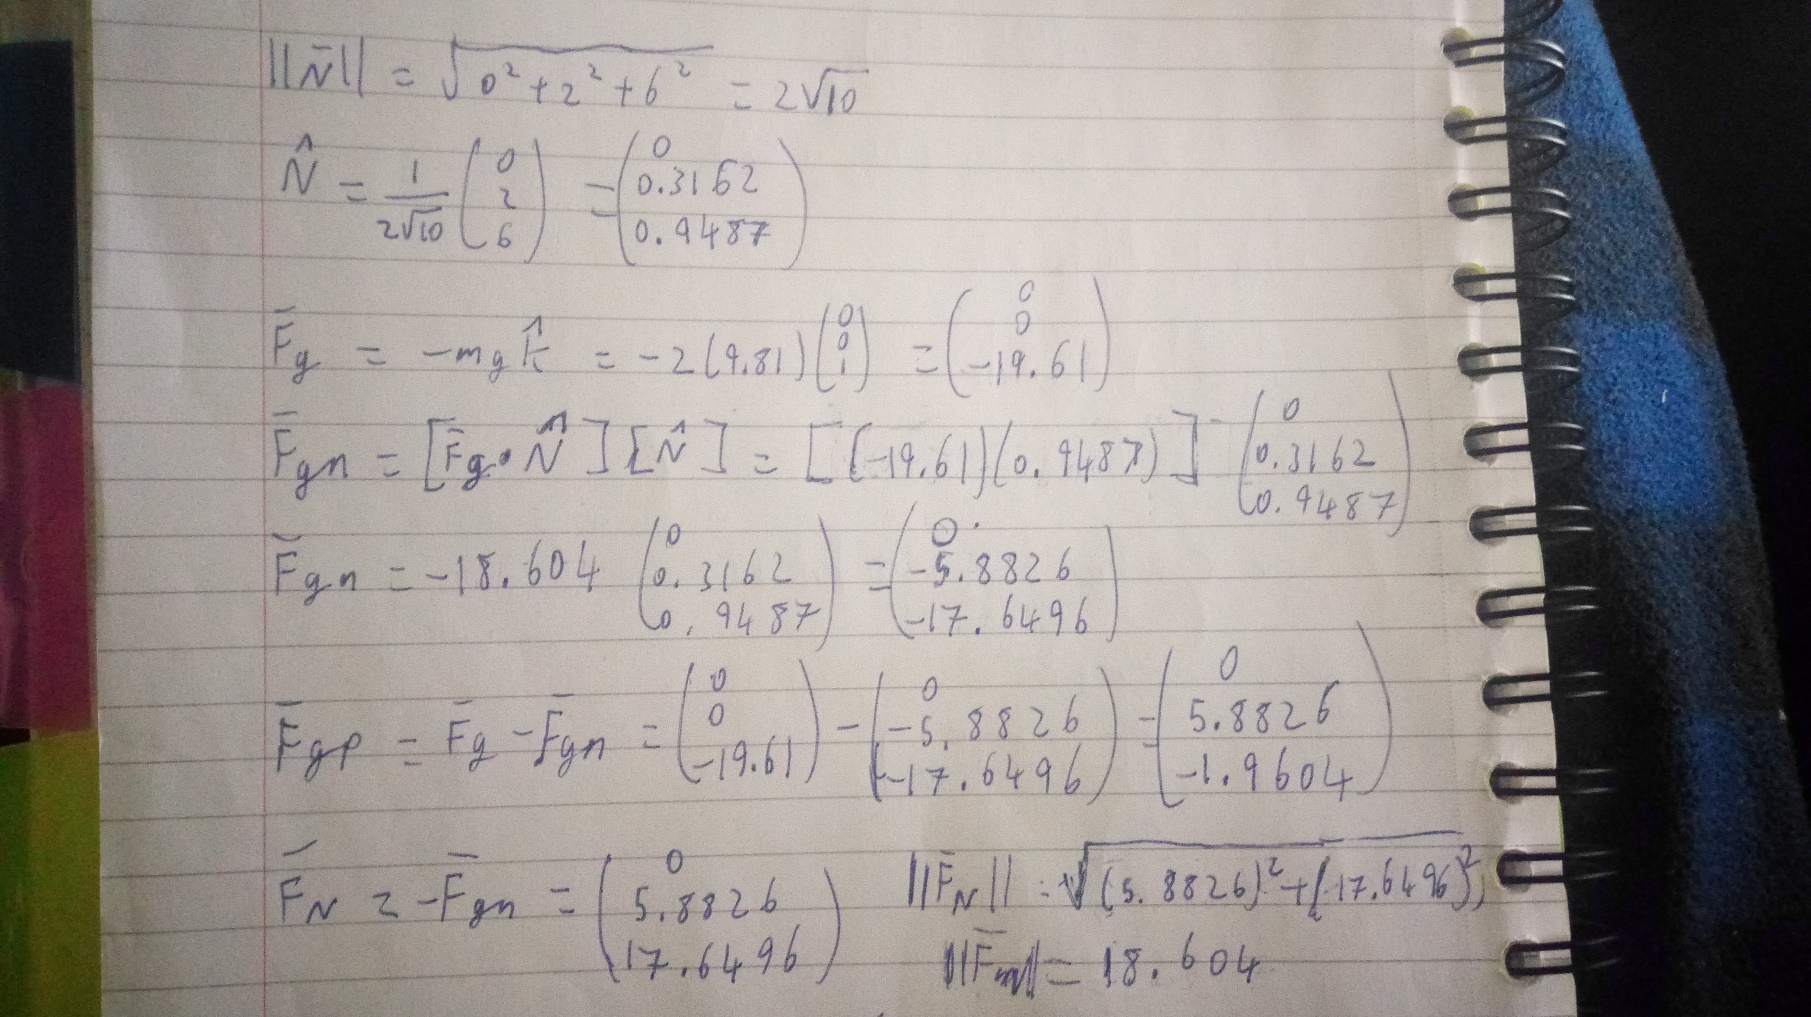 ||N̄|| = √(0² + 2² + 6²) = 2√10
N̂ = 1/(2√10) (0 2 6) = (0 0.3162 0.9487)
F̄g = -mg k̂ = -2(9.81) (0 0 1) = (0 0 -19.61)
F̄gn = [F̄g • N̂] [N̂] = [(-19.61)(0.9487)] (0 0.3162 0.9487)
F̄gn = -18.604 (0 0.3162 0.9487) = (0 -5.8826 -17.6496)
F̄gp = F̄g - F̄gn = (0 0 -19.61) - (0 -5.8826 -17.6496) = (0 5.8826 -1.9604)
F̄N = -F̄gn = (0 5.8826 17.6496) ||F̄N|| = √((5.8826)² + (17.6496)²)
||F̄N|| = 18.604